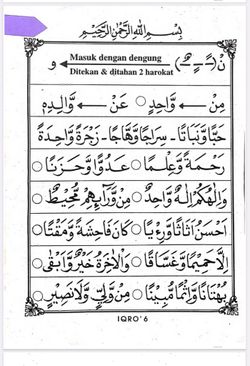 بِسْمِ اللهِ الرَّحْمٰنِ الرَّحِيْمِ
نْ (ـًـ ـٍـ ـٌـ) Masuk dengan dengung و
Ditekan & ditahan 2 harokat
مِنْ وَّاحِدٍ ○ عَنْ وَّالِدِهٖ
حَبًّا وَّنَبَاتًا ○ سِرَاجًا وَّهَّاجًا ○ زَجْرَةٌ وَّاحِدَةٌ
رَحْمَةً وَّعِلْمًا ○ عَدُوًّا وَّحَزَنًا ○
وَاِلٰهُكُمْ اِلٰهٌ وَّاحِدٌ ○ مِنْ وَّرَآئِهِمْ مُّحِيْطٌ ○
اَحْسَنُ اَثَاثًا وَّرِءْيًا ○ كَانَ فَاحِشَةً وَّمَقْتًا ○
اِلَّا حَمِيْمًا وَّغَسَّاقًا ○ وَالْاٰخِرَةُ خَيْرٌ وَّاَبْقٰى ○
بُهْتَانًا وَّاِثْمًا مُّبِيْنًا ○ مِنْ وَّلِيٍّ وَّلَا نَصِيْرٍ ○
IQRO' 6